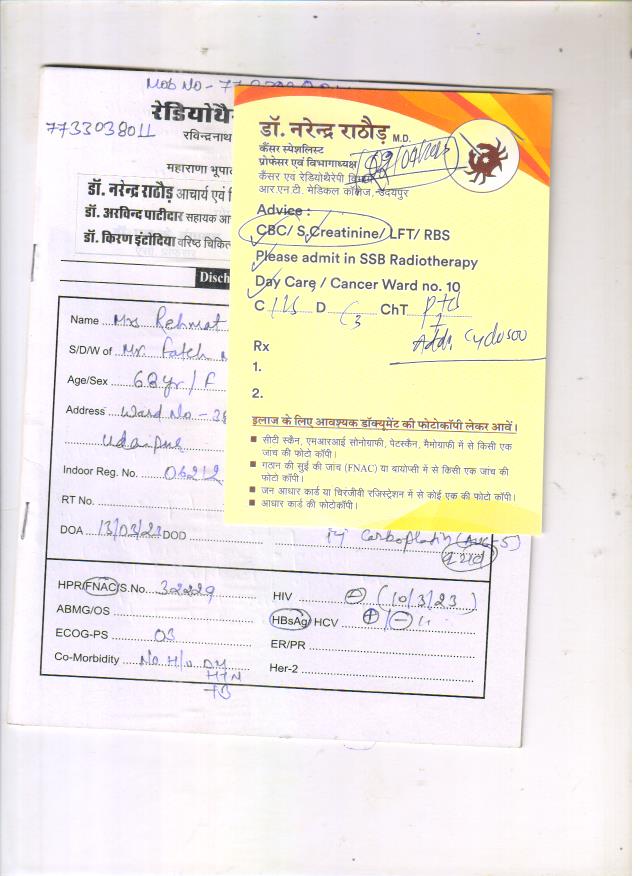 Mob No -
7733038011
रेडियोथै
रविन्द्रनाथ
महाराणा भूपा
डॉ. नरेन्द्र राठौड़ आचार्य एवं
डॉ. अरविन्द पाटीदार सहायक आ
डॉ. किरण इंटोदिया वरिष्ठ चिकि
Disch
Name Mrs Rehmat
S/D/W of Mr. Fateh
Age/Sex 63 yr / F
Address Ward No - 38
Udaipur
Indoor Reg. No. 06212
RT No.
DOA 13/03/23 DOD
Carboplatin (AUC-5)
HPR/FNAC/S.No. 32229
ABMG/OS
ECOG-PS 03
Co-Morbidity No H/o DM
HTN
TB
HIV ⊖ (10/3/23)
HBsAg/ HCV ⊕/⊖
ER/PR
Her-2
डॉ. नरेन्द्र राठौड़ M.D.
कैंसर स्पेशलिस्ट
प्रोफेसर एवं विभागाध्यक्ष
कैंसर एवं रेडियोथैरेपी विभाग
आर.एन.टी. मेडिकल कॉलेज, उदयपुर
Advice :
CBC/ S.Creatinine/ LFT/ RBS
Please admit in SSB Radiotherapy
Day Care / Cancer Ward no. 10
C D C3 ChT
Add. Cyclo 500
Rx
1.
2.
इलाज के लिए आवश्यक डॉक्यूमेंट की फोटोकॉपी लेकर आवें।
■ सीटी स्कैन, एमआरआई सोनोग्राफी, पेटस्कैन, मैमोग्राफी में से किसी एक
जांच की फोटो कॉपी।
■ गठान की सुई की जांच (FNAC) या बायोप्सी में से किसी एक जांच की
फोटो कॉपी।
■ जन आधार कार्ड या चिरंजीवी रजिस्ट्रेशन में से कोई एक की फोटो कॉपी।
■ आधार कार्ड की फोटोकॉपी।